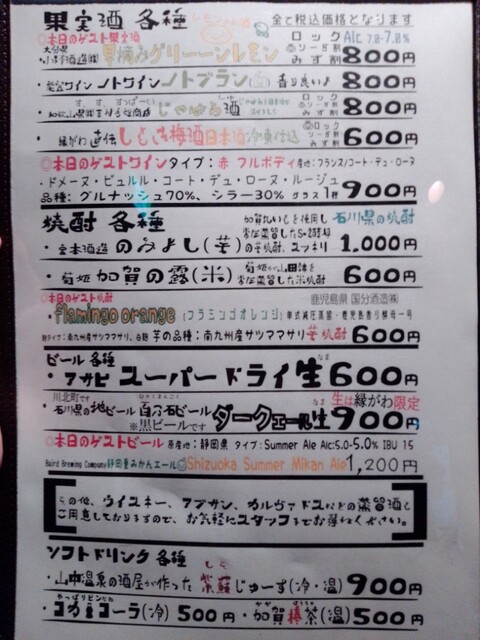 果実酒 各種 全て税込価格となります
◎本日のゲスト果実酒 ロック Alc 7.0-7.8%
大分県 早摘みグリーンレモン ソーダ割 みず割 800円
ノトワイン ノトブラン 香り良い♪ 800円
じゃばら酒 ロック ソーダ割 みず割 800円
・縁がわ 直伝 しそもも梅酒 日本酒 冷凍仕込 ロック ソーダ割 みず割 600円
◎本日のゲストワイン タイプ:赤 フルボディ 産地:フランス/コート・デュ・ローヌ
・ドメーヌ・ビュルル・コート・デュ・ローヌ・ルージュ
品種:グルナッシュ70%、シラー30% グラス1杯 900円
焼酎 各種 石川県の焼酎
・宗玄酒造 のみよし(芋) の芋焼酎、スッキリ 1,000円
・菊姫 加賀の露(米) 600円
◎本日のゲスト焼酎 鹿児島県 国分酒造㈱
・flamingo orange (フラミンゴオレンジ) 単式減圧蒸留・鹿児島香り酵母一号
芋の品種:南九州産サツママサリ 芋焼酎 600円
ビール 各種
・アサヒ スーパードライ生 600円
川北町です 生は縁がわ限定
・石川県の地ビール 百万石ビール ※黒ビールです ダークエール生 900円
◎本日のゲストビール 原産地:静岡県 タイプ:Summer Ale Alc:5.0-5.0% IBU 15
Baird Brewing Company 静岡夏みかんエール Shizuoka Summer Mikan Ale 1,200円
その他、ウイスキー、アブサン、カルヴァドスなどの蒸留酒も
ご用意しておりますので、お気軽にスタッフまでお尋ねください。
ソフトドリンク 各種
・山中温泉の酒屋が作った 紫蘇じゅーす(冷・温) 900円
やっぱりビンでね
・コカ・コーラ(冷) 500円 ・加賀棒茶(温) 500円